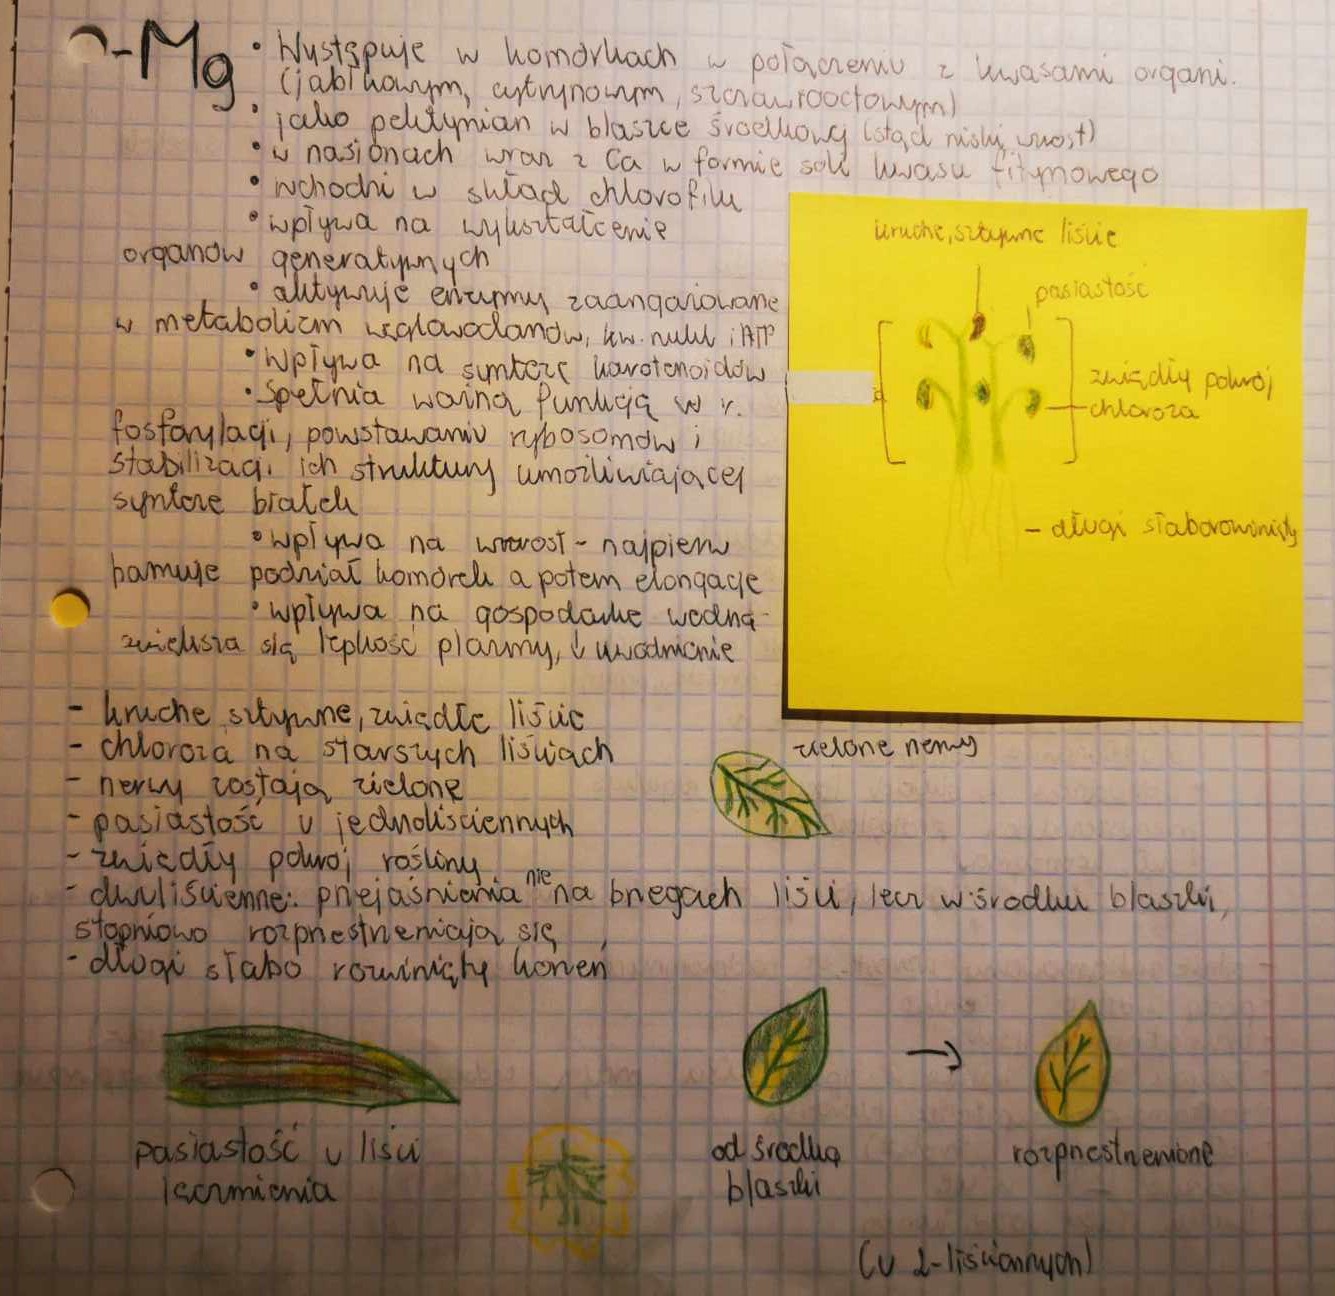 -Mg
• Występuje w komórkach w połączeniu z kwasami organi.
(jabłkowym, cytrynowym, szczawiooctowym)
• jako pektynian w blaszce środkowej (stąd niski wzrost)
• w nasionach wraz z Ca w formie soli kwasu fitynowego
• wchodzi w skład chlorofilu
• wpływa na wykształcenie
organów generatywnych
• aktywuje enzymy zaangażowane
w metabolizm węglowodanów, kw. nukl i ATP
• Wpływa na syntezę karotenoidów
• Spełnia ważną funkcją w r.
fosforylacji, powstawaniu rybosomów i
stabilizacji ich struktury umożliwiającej
syntezę białek
• wpływa na wzrost - najpierw
hamuje podział komórek a potem elongację
• wpływa na gospodarkę wodną -
zwiększa się lepkość plazmy, ↓ uwodnienie
kruche, sztywne liście
pasiastość
zwiędły pokrój
chloroza
- długi słaborozwinięty
- kruche sztywne, zwiędłe liście
- chloroza na starszych liściach
- nerwy zostają zielone
- pasiastość u jednoliściennych
- zwiędły pokrój rośliny
- dwuliścienne: przejaśnienia nie na brzegach liści, lecz w środku blaszki,
stopniowo rozprzestrzeniają się
- długi słabo rozwinięty korzeń
zielone nerwy
pasiastość u liści
jęczmienia
od środka
blaszki
→
rozprzestrzenione
(u 2-liściennych)